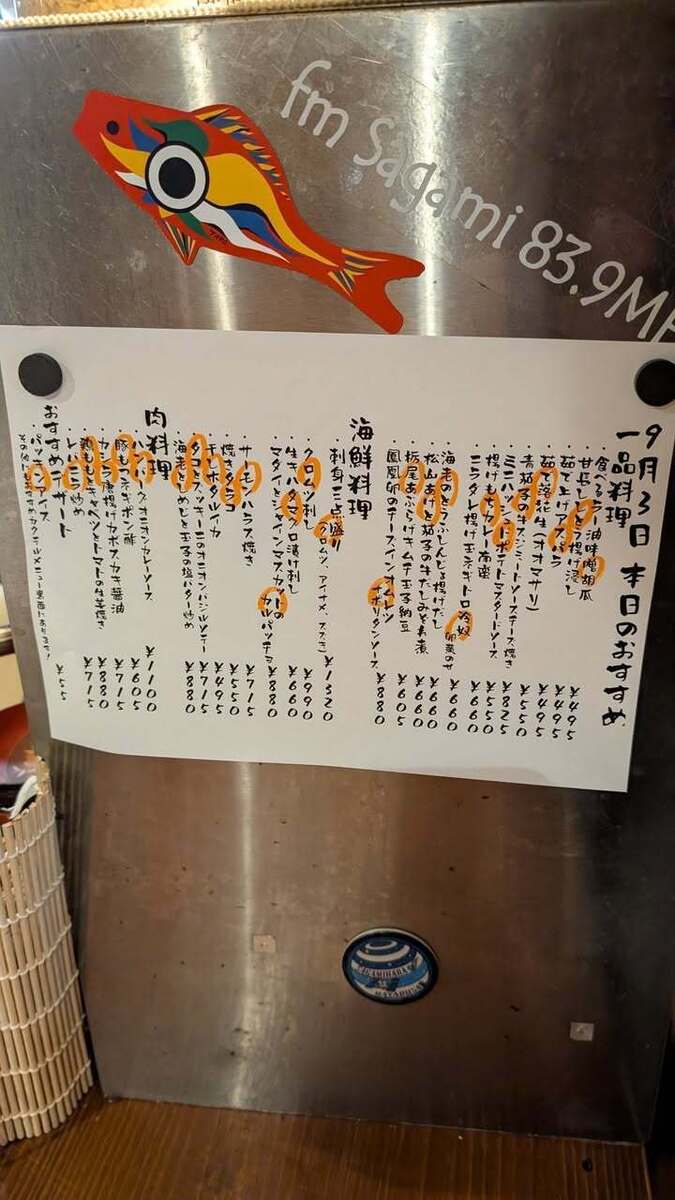 fm Sagami 83.9MH
9月3日 本日のおすすめ
一品料理
・食べるラー油味噌胡瓜 ¥495
・甘長ししとう揚げ浸し ¥495
・茹で上げ 空バラ ¥495
・茹で落花生(オオマサリ) ¥550
・青茄子の牛スジミートソースチーズ焼き ¥825
・ミニハッシュポテトマスタードソース ¥550
・揚げもちカレー南蛮 ¥660
・ニラダレ揚げ玉ネギトロ冷奴 ¥660
・海老のとうふしんじょう揚げだし ¥660
・松山あげと茄子の牛だしみぞれ煮 ¥660
・栃尾あぶらげキムチ玉子納豆 ¥605
・鳳凰卵のチーズインオムレツ ナポリタンソース ¥880
海鮮料理
・刺身三点盛り(クロムツ、アイナメ、スズキ) ¥1320
・クロムツ刺し ¥990
・生キハダマグロ漬け刺し ¥660
・マダイとシャインマスカットのカルパッチョ ¥880
・サーモンハラス焼き ¥715
・焼きタラコ ¥550
・干しホタルイカ ¥495
・ズッキーニのオニオンバジルソテー ¥715
・海老としめじと玉子の塩バター炒め ¥880
肉料理
オニオンカレーソース ¥1100
ネギポン酢 ¥605
・カシラ唐揚げカボスカキ醤油 ¥715
・鶏ももとキャベツとトマトの生姜焼き ¥880
・レバニラ炒め ¥715
おすすめデザート
アイス ¥55
その他にもおすすめカクテルメニュー裏面にあります!
SAGAMIHARA